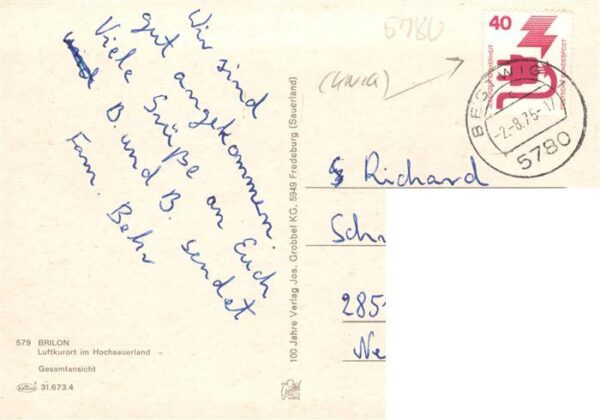 Wir sind
gut angekommen.
Viele Grüße an Euch
und B. und B. sendet
Fam. Behr
579 BRILON
Luftkurort im Hochsauerland
Gesamtansicht
31.673.4
100 Jahre Verlag Jos. Grobbel KG, 5949 Fredeburg (Sauerland)
5780
40
DEUTSCHE BUNDESPOST
BESTWIG 1
-2.-8.76-17
5780
Richard
Sch
285
Ne